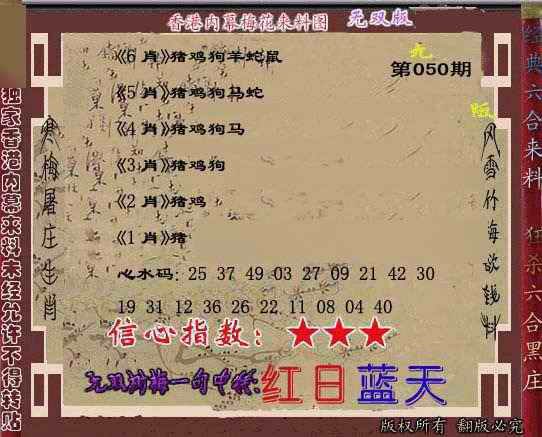 香港内幕梅花来料图 无双版
《6 肖》猪鸡狗羊蛇鼠
第050期
《5 肖》猪鸡狗马蛇
《4 肖》猪鸡狗马
《3 肖》猪鸡狗
《2 肖》猪鸡
《1 肖》猪
心水码: 25 37 49 03 27 09 21 42 30
19 31 12 36 26 22 11 08 04 40
信心指数: ★★★
红日蓝天
版权所有 翻版必究
独家香港内幕来料未经允许不得转贴
寒梅屠庄生肖
经典六合来料
狂杀六合黑庄